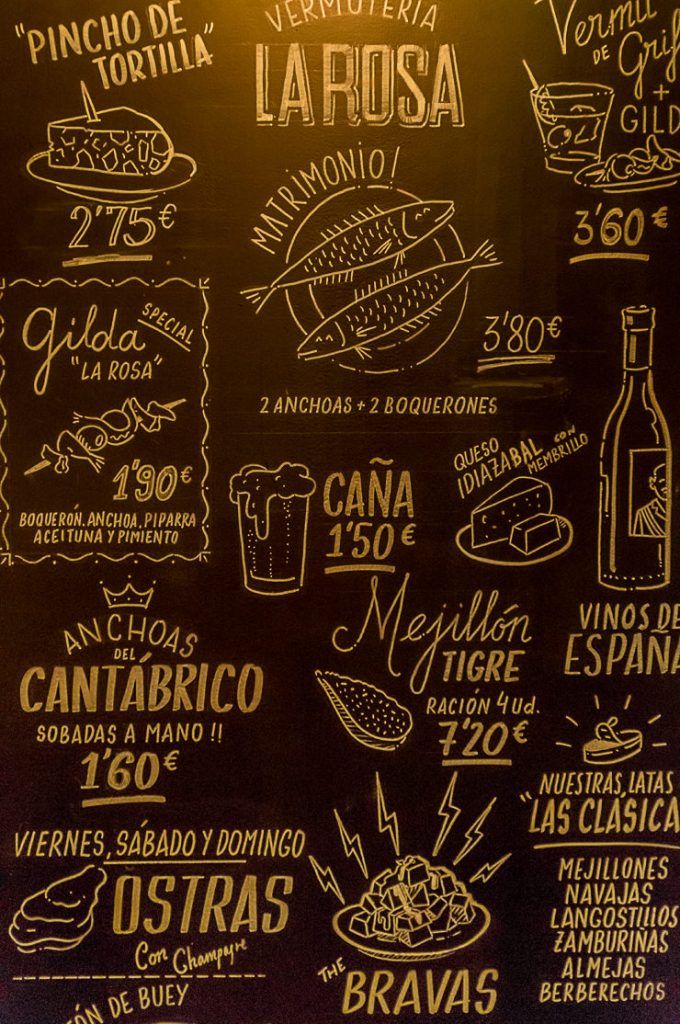 "PINCHO DE
TORTILLA"
2'75€
VERMUTERIA
LA ROSA
Vermú
DE Grifo
+
GILDA
3'60€
MATRIMONIO!
3'80€
2 ANCHOAS + 2 BOQUERONES
Gilda
SPECIAL
"LA ROSA"
1'90€
BOQUERÓN, ANCHOA, PIPARRA
ACEITUNA Y PIMIENTO
CAÑA
1'50€
QUESO
IDIAZABAL CON
MEMBRILLO
VINOS DE
ESPAÑA
ANCHOAS
DEL
CANTÁBRICO
SOBADAS A MANO !!
1'60€
Mejillón
TIGRE
RACIÓN 4 ud.
7'20€
NUESTRAS LATAS
"LAS CLÁSICA
MEJILLONES
NAVAJAS
LANGOSTILLOS
ZAMBURIÑAS
ALMEJAS
BERBERECHOS
VIERNES, SÁBADO Y DOMINGO
OSTRAS
Con Champagne
THE
BRAVAS
DE BUEY